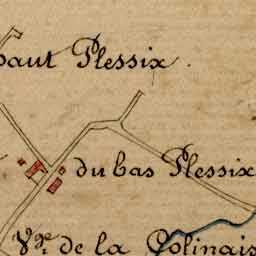 haut Plessix.
du bas Plessix
V.ge de la Colinais